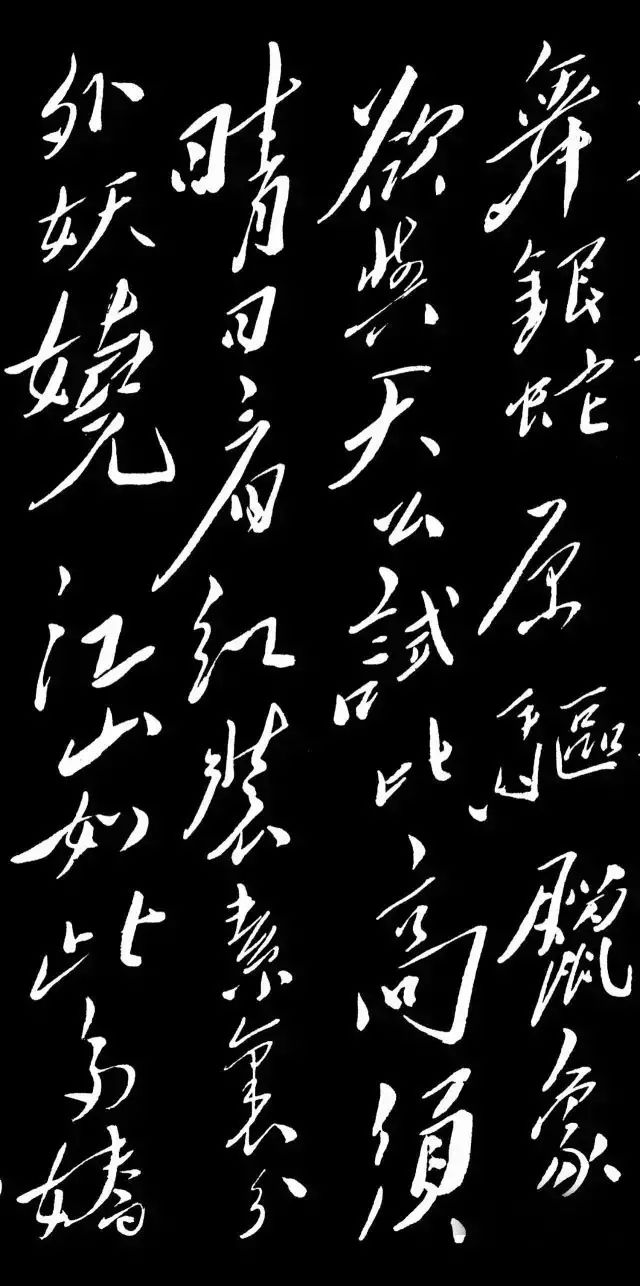 舞銀蛇原驅臘象
欲與天公試比高須
晴日看紅裝素裹分
外妖嬈江山如此多嬌